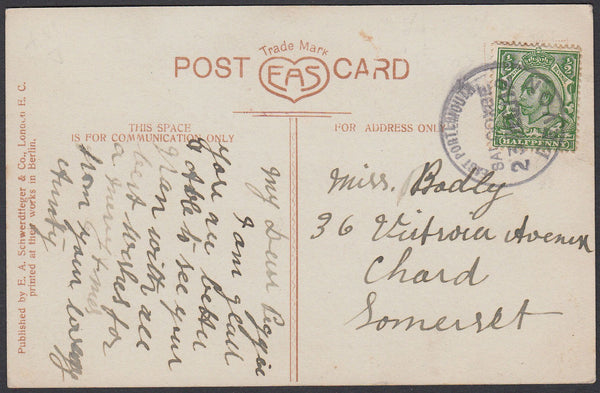 Trade Mark
POST CARD
EAS
THIS SPACE
IS FOR COMMUNICATION ONLY
FOR ADDRESS ONLY
HALFPENNY
EAST PORTLEMOUTH
My Dear Peggie
I am glad
you are better
& able to see your
Gran with all
best wishes for
a merry
Xmas
from your loving
Aunty
Miss. Bodly
36 Victroia Avenue
Chard
Somerset
Published by E. A. Schwerdtfeger & Co., London E. C.
printed at their works in Berlin.